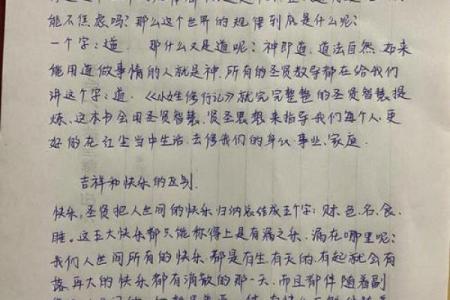 能不焦虑吗?那么这个世界的规律到底是什么呢?
一个字:道。那什么又是道呢?神即道,道法自然,如来
能用道做事情的人就是神.所有的圣贤教导都在给我们
讲这个字:道.《女生修行记》就完完整整的圣贤智慧提
炼、这本书会用圣贤智慧、圣贤思想来指导我们每个人,更
好的在红尘当中生活.去修我们的身心、事业、家庭.
吉祥和快乐的区别.
快乐,圣贤把人世间的快乐归纳总结成五个字:财、色、名、食、
睡。这五大快乐都只能称得上是有漏之乐.漏在哪里呢?
我们人世间所有的快乐都是有生有灭的,有起就会有
落.再大的快乐都有消散的那一天.而且都伴随着副